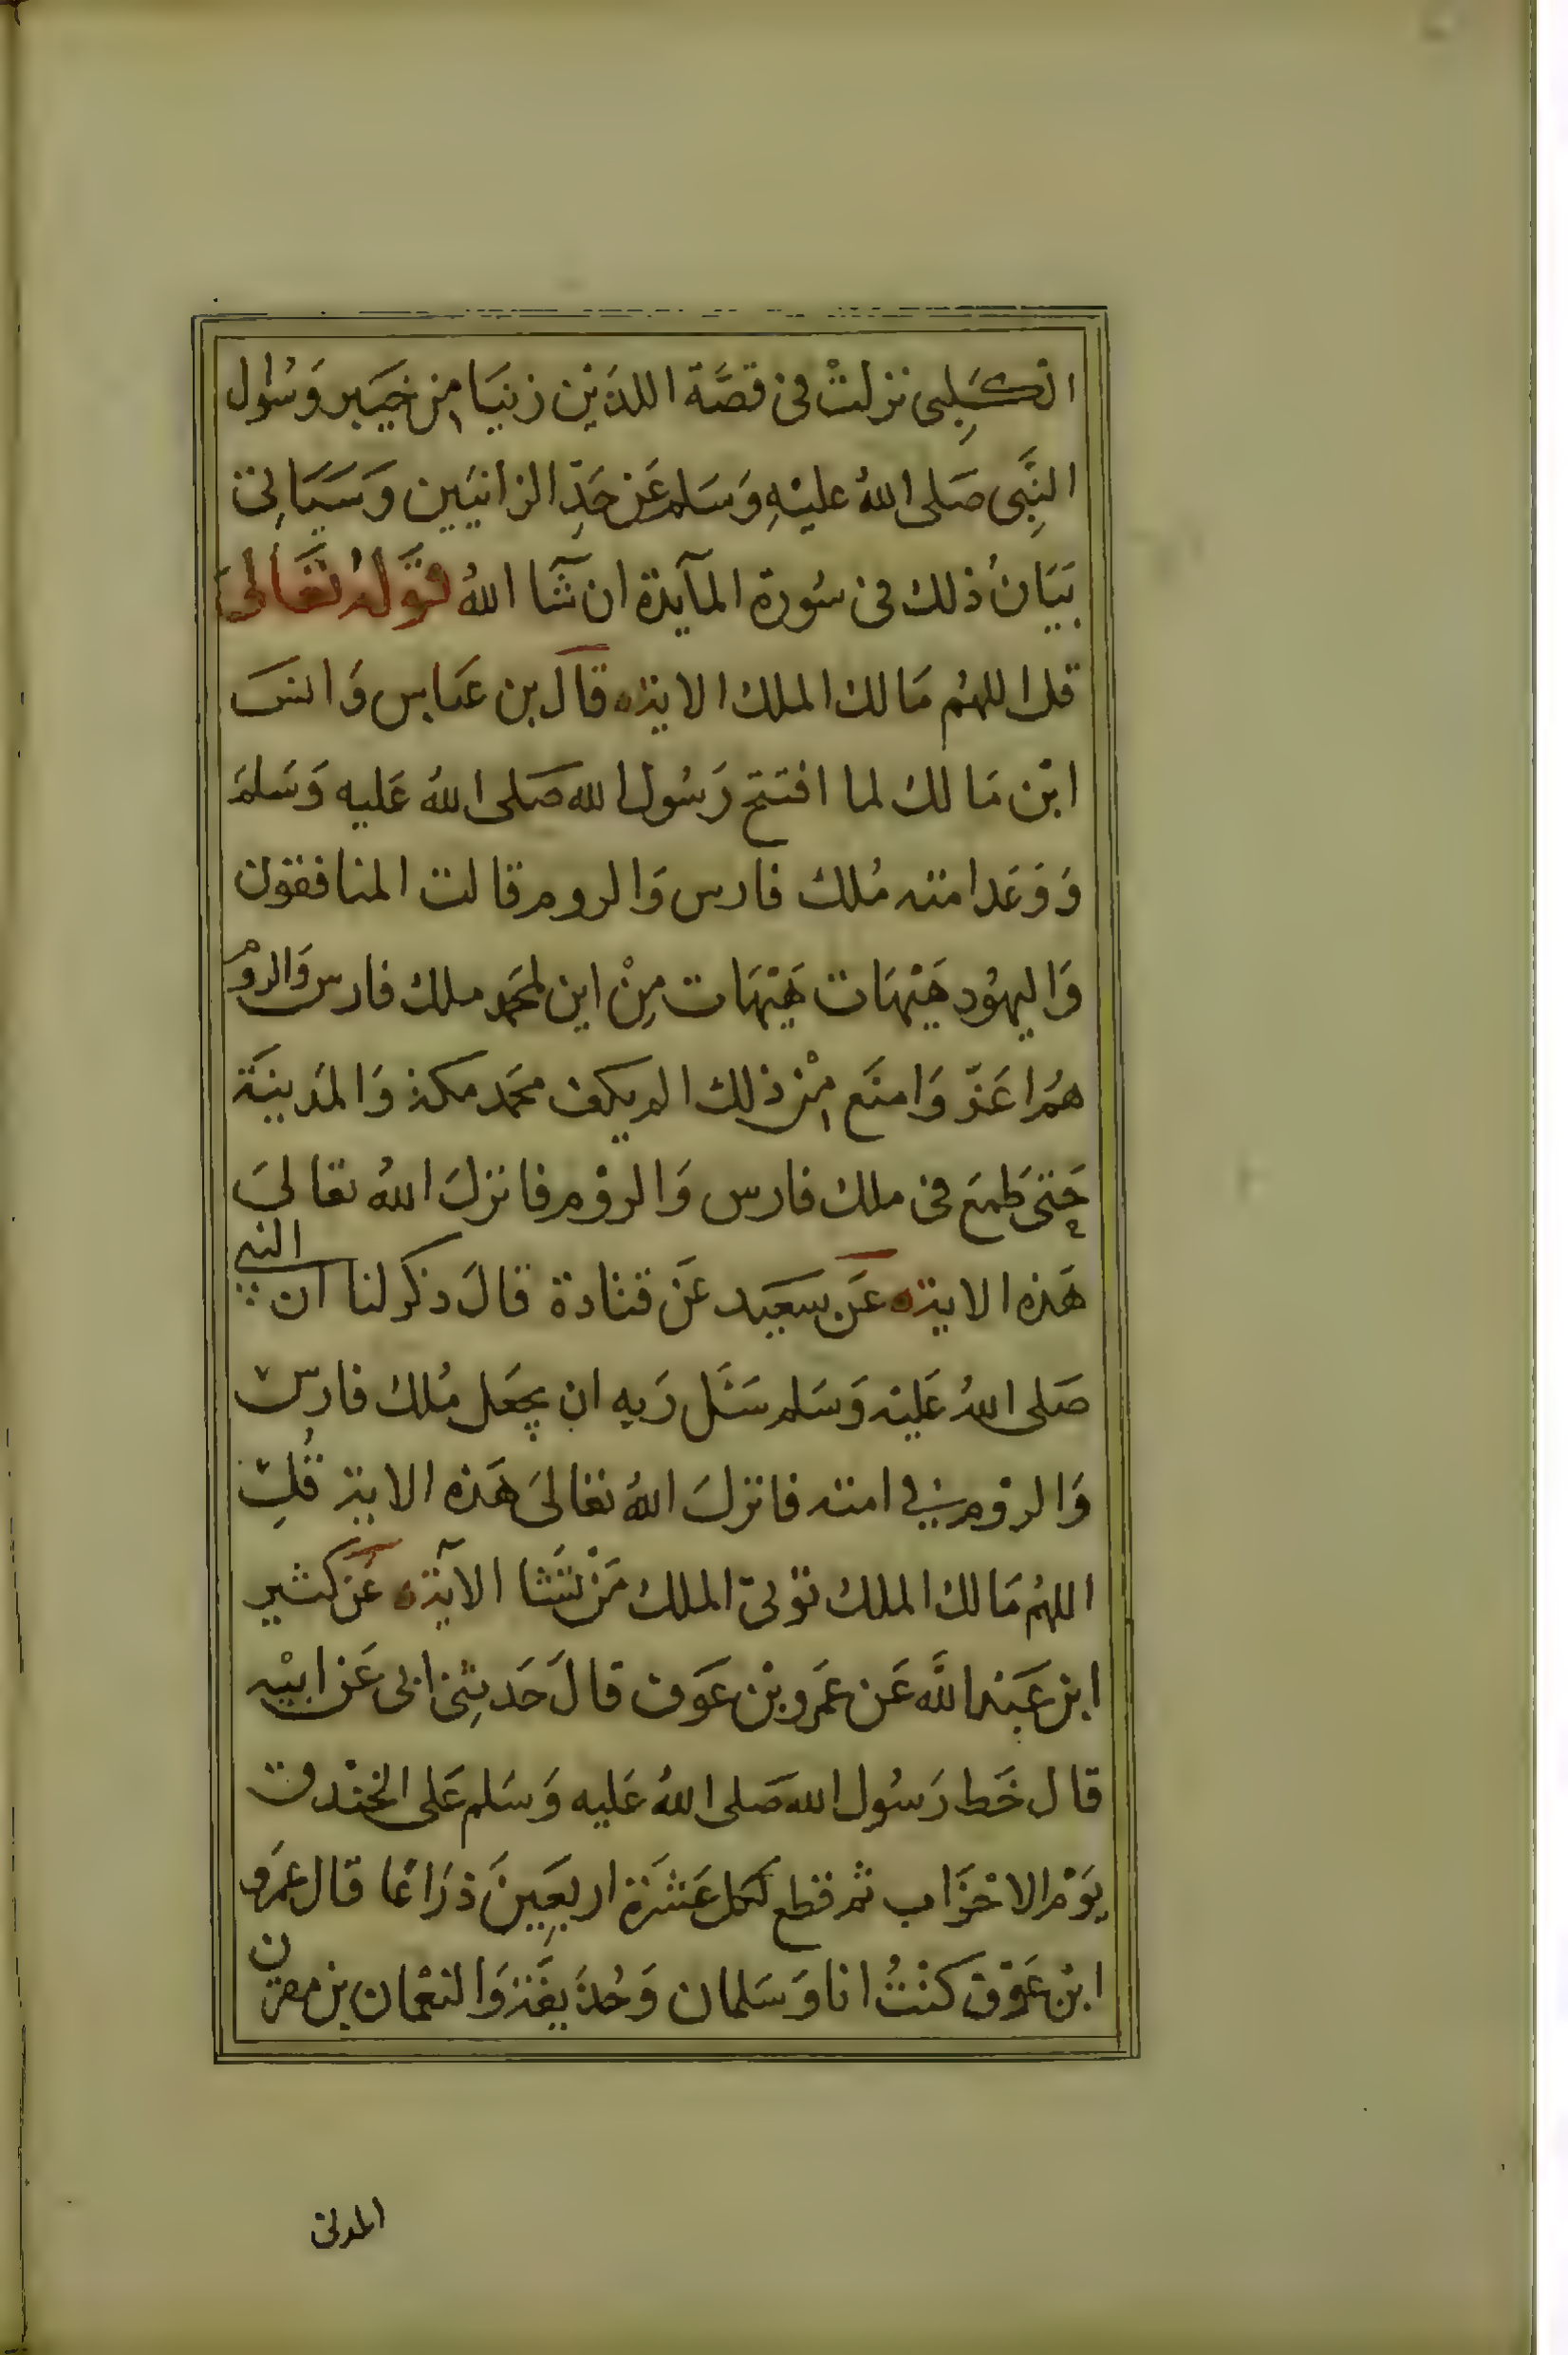 الكَلِبى نزلتْ فى قصَّة اللذَين زنيَا مِن خيبَر وَسُوال
النِّبَى صَلى اللهُ عليْهِ وَسَلم عَن حَدِّ الزانيَين وَسَيَاتى
بَيَانُ ذلك فى سُورة المآيدة ان شآ اللهُ قوَله تعَالىَ
قل اللهُم مَالك الملك الاية قالَ بن عَباس وَانسَ
ابْن مَالك لما افتتح رَسُول الله صَلى اللهُ عَليه وَسَلمَ
وَوَعَد امته مُلك فارس وَالروم قالت المنافقون
وَاليهُود هَيْهَات هَيْهَات مِنْ اين لمحَمد ملك فارس وَالروْم
همُ اعَزّ وَامنَع مِنْ ذلك الم يكف محَمد مكة وَالمَدينَة
حَتىَ طَمعَ فى ملك فارس وَالروْم فانزلَ اللهُ تعَالىَ
هَذه الاية عَن سعَيد عَن قتادة قالَ ذكر لنا ان النبى
صَلى اللهُ عَليْه وَسَلم سَئَل رَبه ان يجعَل مُلك فارسْ
وَالروْم فى امته فانزلَ اللهُ تعَالىَ هَذه الاية قُلِ
اللهُم مَالك الملك توْتىَ الملك مَنْ تشَا الآية عَن كثير
ابن عَبْد اللَّه عَن عَمرو بْن عَوَف قالَ حَدثِنى ابى عَن ابيْه
قال خَط رَسُول الله صَلى اللهُ عَليه وَسَلم عَلى الخنْدق
يوَمْ الاحْزَاب ثم قطع لكل عَشرَة اربعِينَ ذرَاعًا قال عَمرَو
ابْن عَوَف كنْتُ انا وَسَلمان وَحُذيفَة وَالنعْمان بن مقرن
المزنى